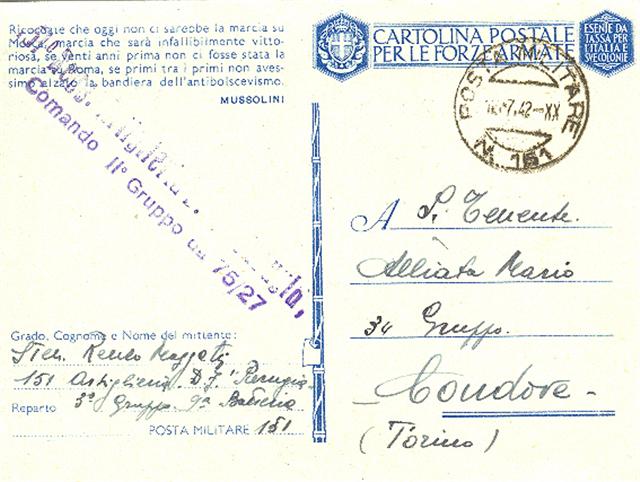 Ricordate che oggi non ci sarebbe la marcia su
Mosca, marcia che sarà infallibilmente vitto-
riosa, se venti anni prima non ci fosse stata la
marcia su Roma, se primi tra i primi non aves-
simo alzato la bandiera dell'antibolscevismo.
MUSSOLINI
Comando IIº Gruppo da 75/27
CARTOLINA POSTALE
PER LE FORZE ARMATE
ESENTE DA
TASSA PER
L'ITALIA E
SUE COLONIE
POSTA MILITARE
7.42-XX
N. 151
A S. Tenente
Alliata Mario
34 Gruppo.
Condove -
(Torino)
Grado, Cognome e Nome del mittente:
Sten. Renzo
151 Artiglieria D.f. Perugia
Reparto 3º Gruppo 9a Batteria
POSTA MILITARE 151